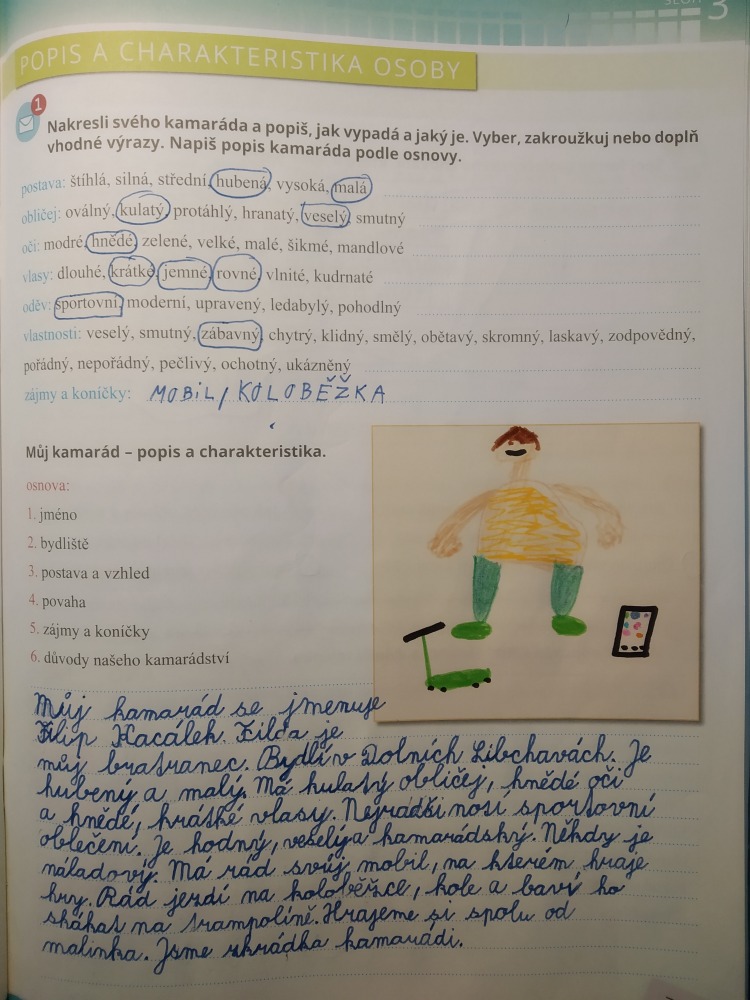 3
POPIS A CHARAKTERISTIKA OSOBY
1
Nakresli svého kamaráda a popiš, jak vypadá a jaký je. Vyber, zakroužkuj nebo doplň
vhodné výrazy. Napiš popis kamaráda podle osnovy.
postava: štíhlá, silná, střední, hubená, vysoká, malá
obličej: oválný, kulatý, protáhlý, hranatý, veselý, smutný
oči: modré, hnědé, zelené, velké, malé, šikmé, mandlové
vlasy: dlouhé, krátké, jemné, rovné, vlnité, kudrnaté
oděv: sportovní, moderní, upravený, ledabylý, pohodlný
vlastnosti: veselý, smutný, zábavný, chytrý, klidný, smělý, obětavý, skromný, laskavý, zodpovědný,
pořádný, nepořádný, pečlivý, ochotný, ukázněný
zájmy a koníčky: MOBIL, KOLOBĚŽKA
Můj kamarád – popis a charakteristika.
osnova:
1. jméno
2. bydliště
3. postava a vzhled
4. povaha
5. zájmy a koníčky
6. důvody našeho kamarádství
Můj kamarád se jmenuje
Filip Kacálek. Filda je
můj bratranec. Bydlí v Dolních Libchavách. Je
hubený a malý. Má kulatý obličej, hnědé oči
a hnědé, krátké vlasy. Nejradši nosí sportovní
oblečení. Je hodný, veselý a kamarádský. Někdy je
náladový. Má rád svůj mobil, na kterém hraje
hry. Rád jezdí na koloběžce, kole a baví ho
skákat na trampolíně. Hrajeme si spolu od
malinka. Jsme zkrádka kamarádi.